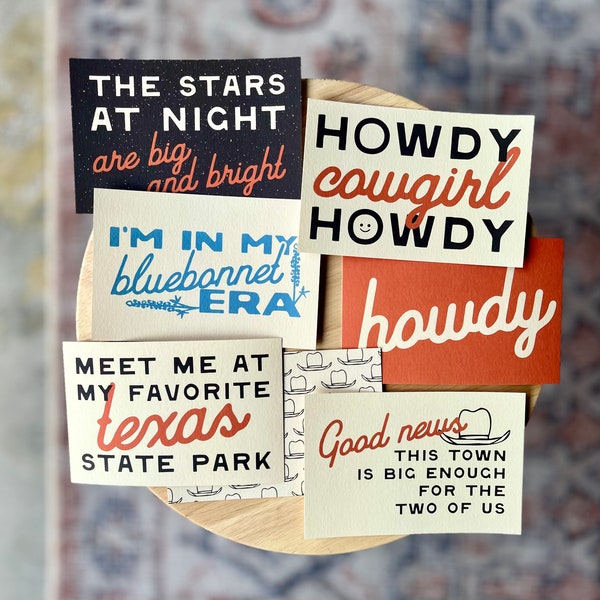 THE STARS
AT NIGHT
are big
and bright
HOWDY
cowgirl
HOWDY
I'M IN MY
bluebonnet
ERA
howdy
MEET ME AT
MY FAVORITE
texas
STATE PARK
Good news
THIS TOWN
IS BIG ENOUGH
FOR THE
TWO OF US